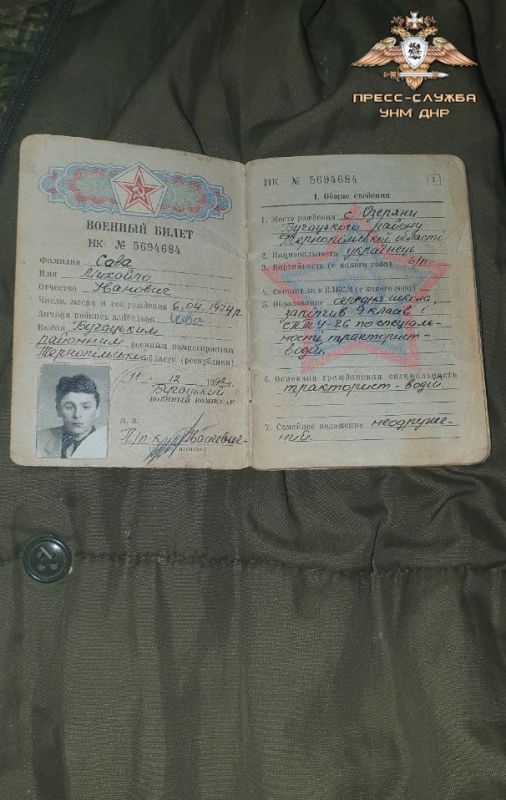 ПРЕСС-СЛУЖБА
УНМ ДНР
ВОЕННЫЙ БИЛЕТ
НК № 5694684
Фамилия Сава
Имя Михайло
Отчество Іванович
Число, месяц и год рождения 6.04.1974р.
Личная подпись владельца
Выдан Бучацьким
районним военным комиссариатом
Тернопільської области (республики)
11 12 1992г.
Бучацкий
ВОЕННЫЙ КОМИССАР
М. П.
П/п-к
НК № 5694684
1
I. Общие сведения
1. Место рождения с. Озеряни
Бучацького району
Тернопільської області
2. Национальность українець
3. Партийность (с какого года) б/п.
4. Состоял ли в ВЛКСМ (с какого года)
5. Образование середня школа,
закінчив 9 класів і
СПТУ-26 по спеціаль-
ности тракторист-
водій.
6. Основная гражданская специальность
тракторист-водій.
7. Семейное положение неодруже-
ний.